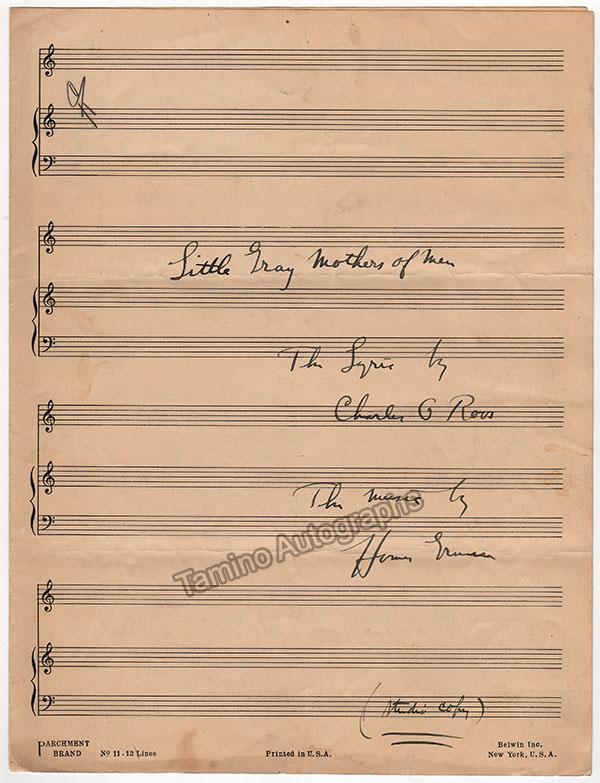 Little Gray Mothers of Men
The Lyric by
Charles O Roos
The music by
Homer Grunn
Tamino Autographs
(studio copy)
PARCHMENT
BRAND Nº 11-12 Lines
Printed in U.S.A.
Belwin Inc.
New York, U.S.A.